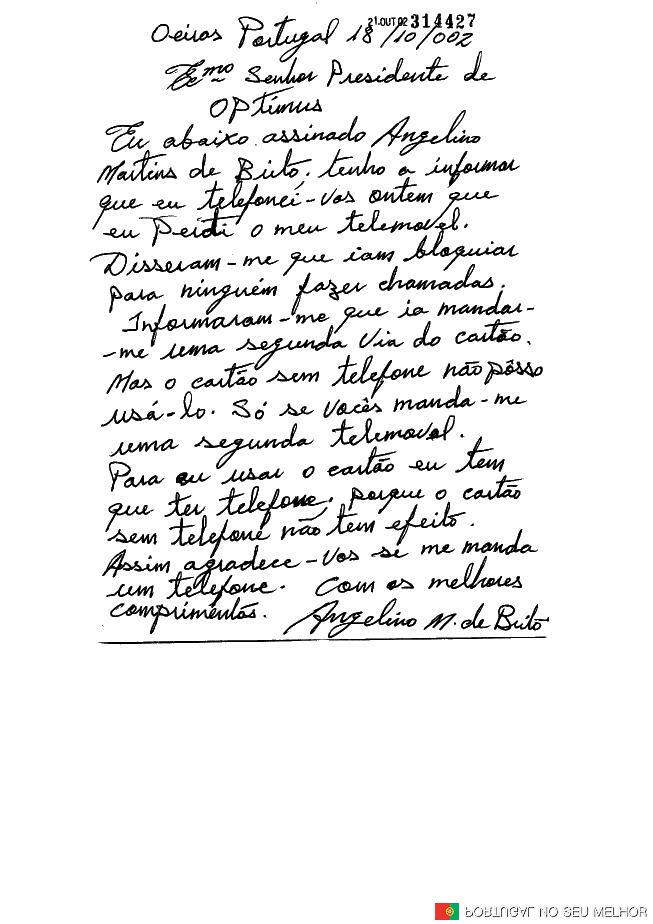 21.OUT 02 314427
Oeiras Portugal 18/10/002
Exmo Senhor Presidente de
OPtimus
Eu abaixo assinado Angelino
Martins de Brito, tenho a informar
que eu telefonei-vos ontem que
eu Perdi o meu telemovel.
Disseram-me que iam bloquiar
para ninguém fazer chamadas.
Informaram-me que ia mandar-
-me uma segunda via do cartão.
Mas o cartão sem telefone não pôsso
usá-lo. Só se vocês manda-me
uma segunda telemovel.
Para eu usar o cartão eu tem
que ter telefone, porque o cartão
sem telefone não tem efeito.
Assim agradece-vos se me manda
um telefone. Com os melhores
comprimentos. Angelino M. de Brito
PORTUGAL NO SEU MELHOR